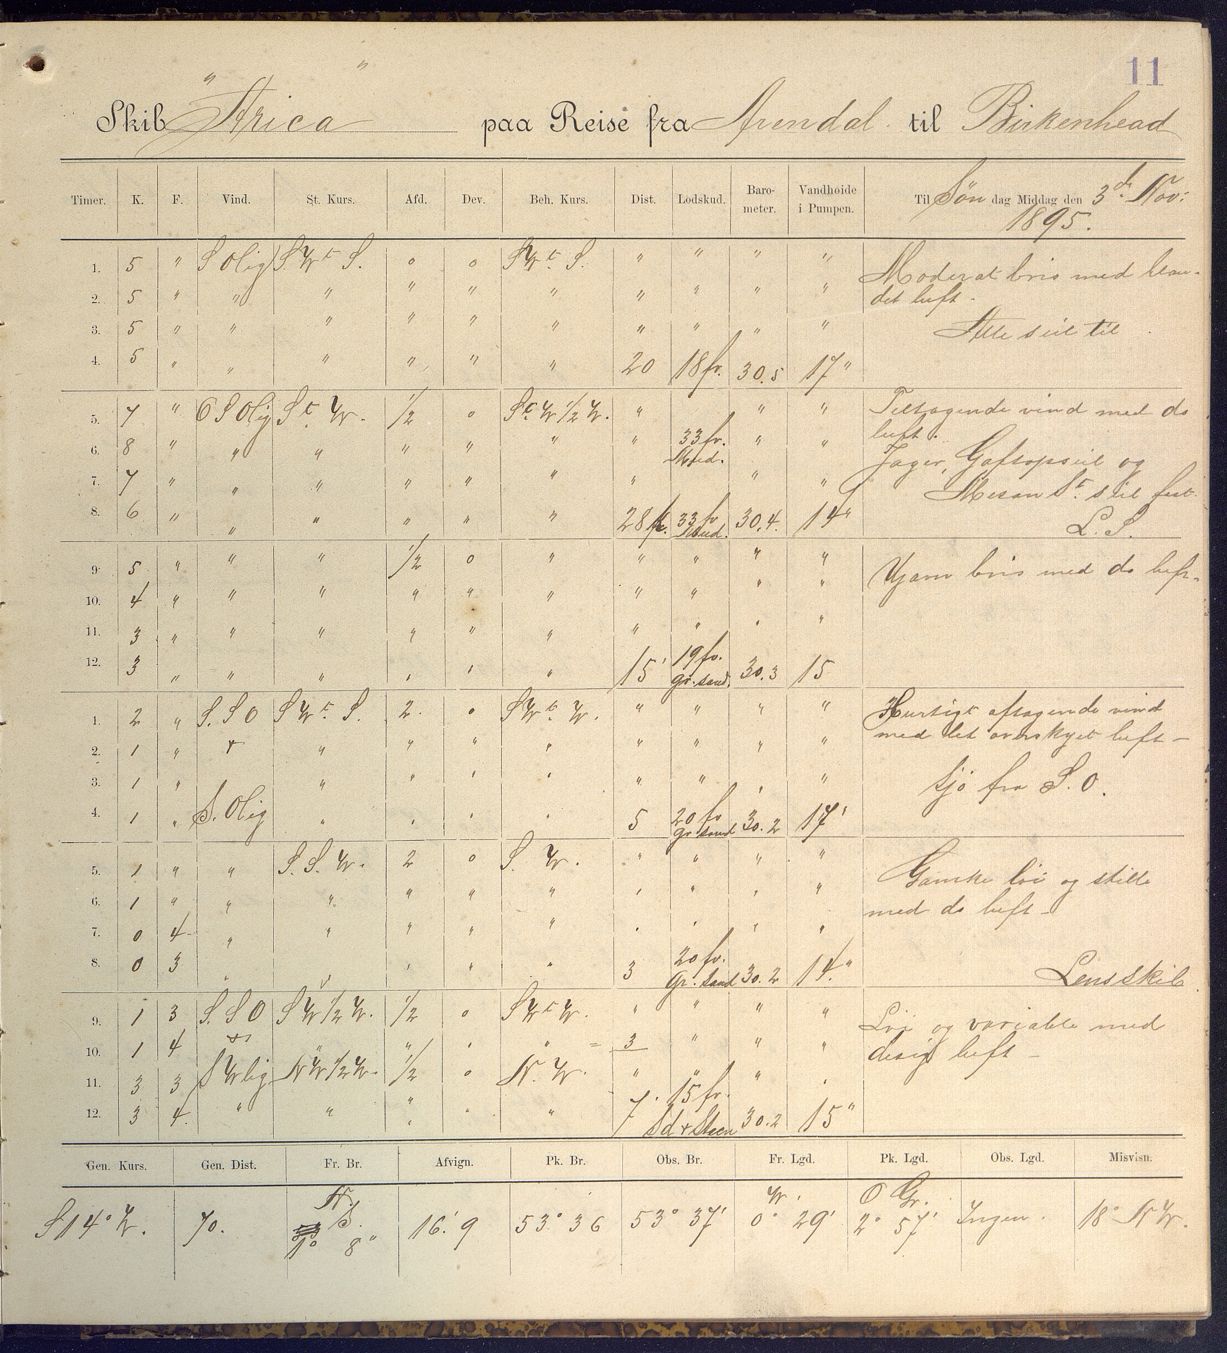 11
Skib "Arica" paa Reise fra Arendal til Birkenhead
Timer. K. F. Vind. St. Kurs. Afd. Dev. Beh. Kurs. Dist. Lodskud. Baro-meter. Vandhoide i Pumpen. Til Søn dag Middag den 3de Nov: 1895.
1. 5 " S Olig S W t S. 0 0 S W t S. " " " " Moderat bris med blan-
2. 5 " " " " " " " " " " det luft.
3. 5 " " " " " " " " " " Alle seil til
4. 5 " " " " " " 20 18 fv. 30.5 17"
5. 7 " 6 S Olig S t W. 1/2 0 S t W 1/2 W. " " " Tiltagende vind med do
6. 8 " " " " " " " 33 fv. Mud. " " luft.
7. 7 " " " " " " " " " Jager, Gaftopseil og
8. 6 " " " " " " 28 33 fv Mud. 30.4. 14" Mesan St. seil fast
L. S.
9. 5 " " " 1/2 0 " " " " " Ujavn bris med do luft.
10. 4 " " " " " " " " " "
11. 3 " " " " " " " " " "
12. 3 " " " " " " 15' 19 fv. gr. sand 30.3 15
1. 2 " S. S O S W t S. 2 0 S W t W. " " " " Hurtigt aftagende vind
2. 1 " + " " " " " " " " med let overskyet luft -
3. 1 " " " " " " " " "
4. 1 " S. Olig " " " " 5 20 fv gr. sand 30.2 17' Sjö fra S. O.
5. 1 " " S. S. W. 2 0 S. W. " " " " Ganske löi og stille
6. 1 " " " " " " " " " " med do luft -
7. 0 4 " " " " " " " " "
8. 0 3 " " " " " 3 20 fv. Gr. Sand 30.2 14." Lens skib
9. 1 3 S. S O S W 1/2 W. 1/2 0 S W t W. " " " " Löi og variable med
10. 1 4 " " " = 3 " " " desig luft -
11. 3 3 S W lig N W 1/2 W. 1/2 0 N. W. " " " "
12. 3 4. " " " " " 7' 15 fv. Sd + Steen 30.2 15"
Gen. Kurs. Gen. Dist. Fr. Br. Afvign. Pk. Br. Obs. Br. Fr. Lgd. Pk. Lgd. Obs. Lgd. Misvisn.
S 14° W. 70. N/S. 1° 8' 16'.9 53° 36 53° 37' W. 0° 29' O Gr. 2° 57' Ingen 18° N W.